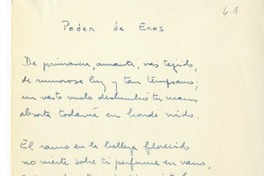 6.1
Poder de Eros
De primavera, amante, vas tejido,
de rumorosa luz y tan temprano;
un vasto vuelo deslumbró tu mano
absorta todavía en hondo nido.
El ramo en la belleza florecido
no vierte sobre ti perfume en vano,